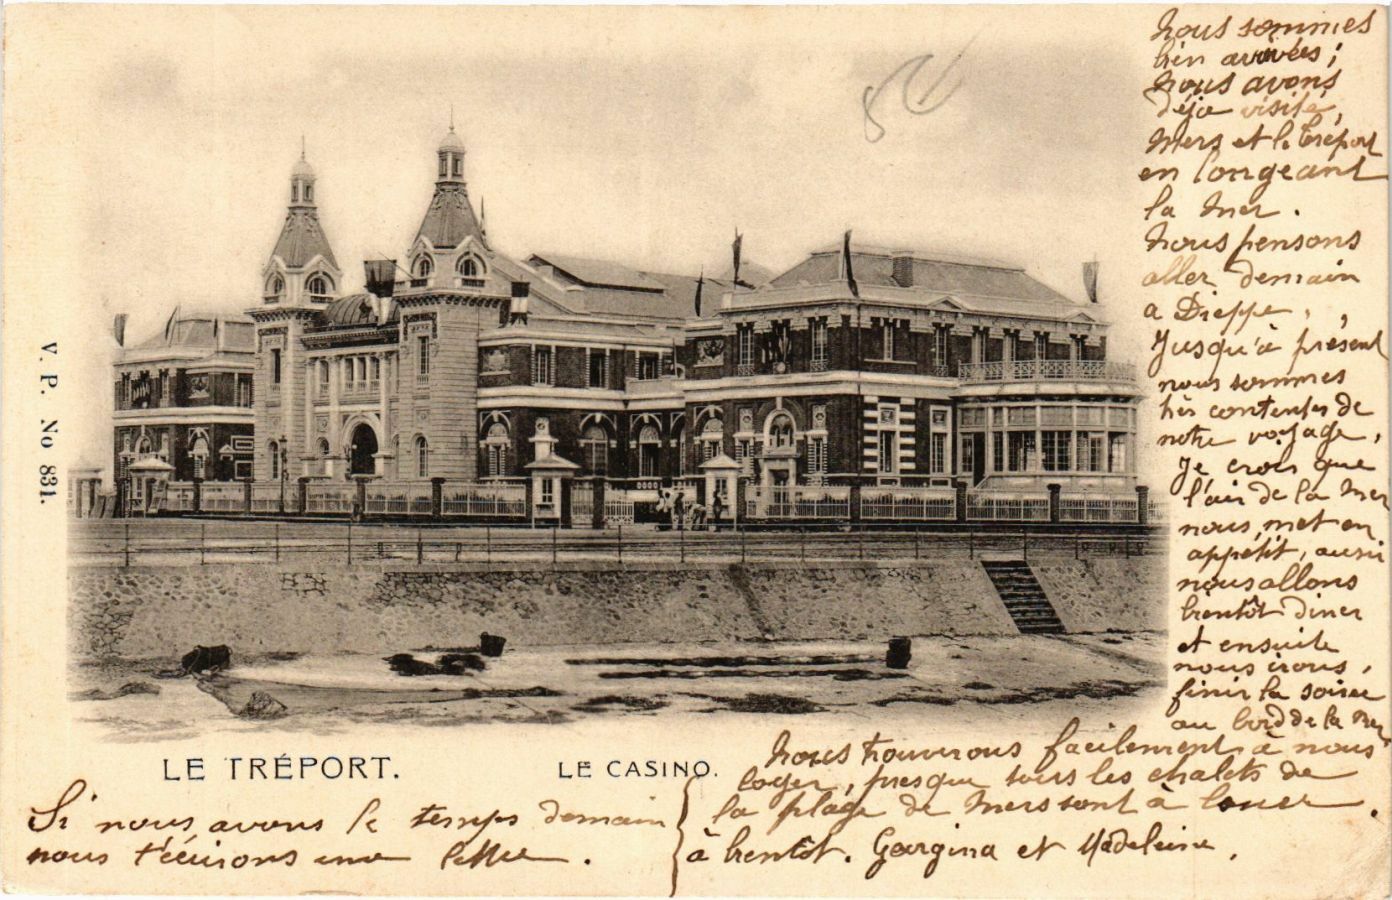 Nous sommes
bien arrivées ;
nous avons
déja visité,
Mers et le Tréport
en longeant
la mer.
Nous pensons
aller demain
a Dieppe,
Jusqu'à présent
nous sommes
très contentes de
notre voyage,
Je crois que
l'air de la mer
nous met en
appétit, aussi
nous allons
bientôt diner
et ensuite
nous irons,
finir la soirée
au bord de la mer
Nous trouverons facilement à nous
loger, presque tous les chalets de
la plage de Mers sont à louer.
à bientôt. Georgina et Madeleine.
V. P. No 831.
LE TRÉPORT.
LE CASINO.
Si nous avons le temps demain
nous t'écrirons une lettre.